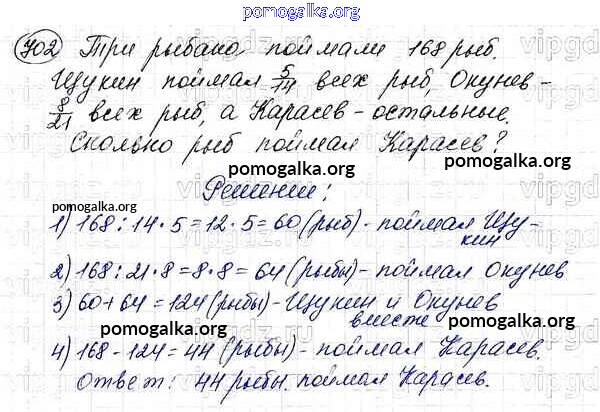 pomogalka.org
702 Три рыбака поймали 168 рыб.
Щукин поймал 5/14 всех рыб, Окунев -
8/21 всех рыб, а Карасев - остальные.
Сколько рыб поймал Карасев?
pomogalka.org
pomogalka.org
Решение:
pomogalka.org
1) 168 : 14 · 5 = 12 · 5 = 60 (рыб) - поймал Щу-
кин
pomogalka.org
2) 168 : 21 · 8 = 8 · 8 = 64 (рыбы) - поймал Окунев
3) 60 + 64 = 124 (рыбы) - Щукин и Окунев
вместе
pomogalka.org
pomogalka.org
4) 168 - 124 = 44 (рыбы) - поймал Карасев.
Ответ: 44 рыбы поймал Карасев.
pomogalka.org